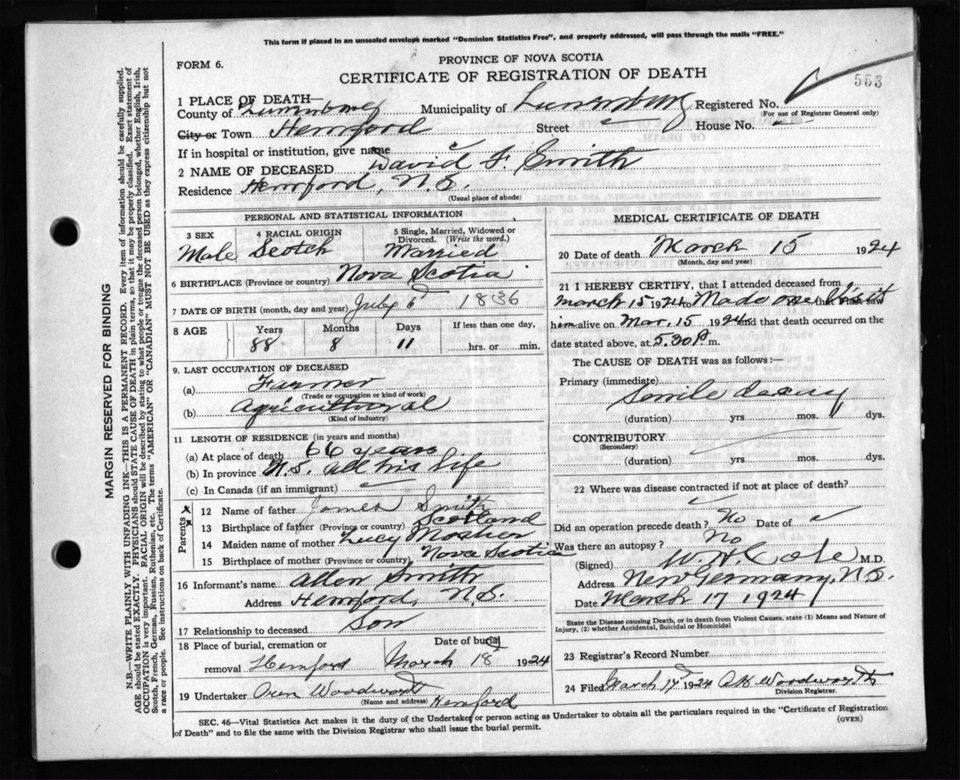 This form if placed in an unsealed envelope marked "Dominion Statistics Free", and properly addressed, will pass through the mails "FREE."
FORM 6.
PROVINCE OF NOVA SCOTIA
CERTIFICATE OF REGISTRATION OF DEATH
553
1 PLACE OF DEATH—
County of Lunenburg Municipality of Lunenburg Registered No.
(For use of Registrar General only)
City or Town Hemford Street House No.
If in hospital or institution, give name
2 NAME OF DECEASED David F. Smith
Residence Hemford, N.S.
(Usual place of abode)
PERSONAL AND STATISTICAL INFORMATION
3 SEX 4 RACIAL ORIGIN 5 Single, Married, Widowed or Divorced. (Write the word.)
Male Scotch Married
6 BIRTHPLACE (Province or country) Nova Scotia
7 DATE OF BIRTH (month, day and year) July 6 1836
8 AGE Years Months Days If less than one day,
88 8 11 hrs. or min.
9. LAST OCCUPATION OF DECEASED
(a) Farmer
(Trade or occupation or kind of work)
(b) Agricultural
(Kind of industry)
11 LENGTH OF RESIDENCE (in years and months)
(a) At place of death 66 years
(b) In province N.S. all his life
(c) In Canada (if an immigrant)
Parents
12 Name of father James Smith
13 Birthplace of father (Province or country) Scotland
14 Maiden name of mother Lucy Mosher
15 Birthplace of mother (Province or country) Nova Scotia
16 Informant's name Allen Smith
Address Hemford, N.S.
17 Relationship to deceased Son
18 Place of burial, cremation or Date of burial
removal Hemford March 18 1924
19 Undertaker Oren Woodworth
(Name and address) Hemford
MEDICAL CERTIFICATE OF DEATH
20 Date of death March 15 1924
(Month, day and year)
21 I HEREBY CERTIFY, that I attended deceased from
March 15 1924 to Made one Visit
him alive on Mar. 15 1924 and that death occurred on the
date stated above, at 5.30 P.m.
The CAUSE OF DEATH was as follows:—
Primary (immediate)
Senile decay
(duration) yrs mos. dys.
CONTRIBUTORY
(Secondary)
(duration) yrs. mos. dys.
22 Where was disease contracted if not at place of death?
Did an operation precede death? No Date of
Was there an autopsy? No
(Signed) W.N. Cole M.D.
Address New Germany, N.S.
Date March 17 1924
State the Disease causing Death, or in death from Violent Causes, state (1) Means and Nature of
Injury, (2) whether Accidental, Suicidal or Homicidal
23 Registrar's Record Number
24 Filed March 17 1924 Woodworth
Division Registrar.
SEC. 46—Vital Statistics Act makes it the duty of the Undertaker or person acting as Undertaker to obtain all the particulars required in the "Certificate of Registration
of Death" and to file the same with the Division Registrar who shall issue the burial permit. (OVER)
MARGIN RESERVED FOR BINDING
N.B.—WRITE PLAINLY WITH UNFADING INK—THIS IS A PERMANENT RECORD. Every item of information should be carefully supplied.
AGE should be stated EXACTLY. PHYSICIANS should STATE CAUSE OF DEATH in plain terms, so that it may be properly classified. Exact statement of
OCCUPATION is very important. RACIAL ORIGIN will be described by stating to what people or tongue the deceased person belonged, whether English, Irish,
Scotch, French, German, Russian, Ruthenian, etc. The terms "AMERICAN" OR "CANADIAN" MUST NOT BE USED as they express citizenship but not
a race or people. See instructions on back of Certificate.